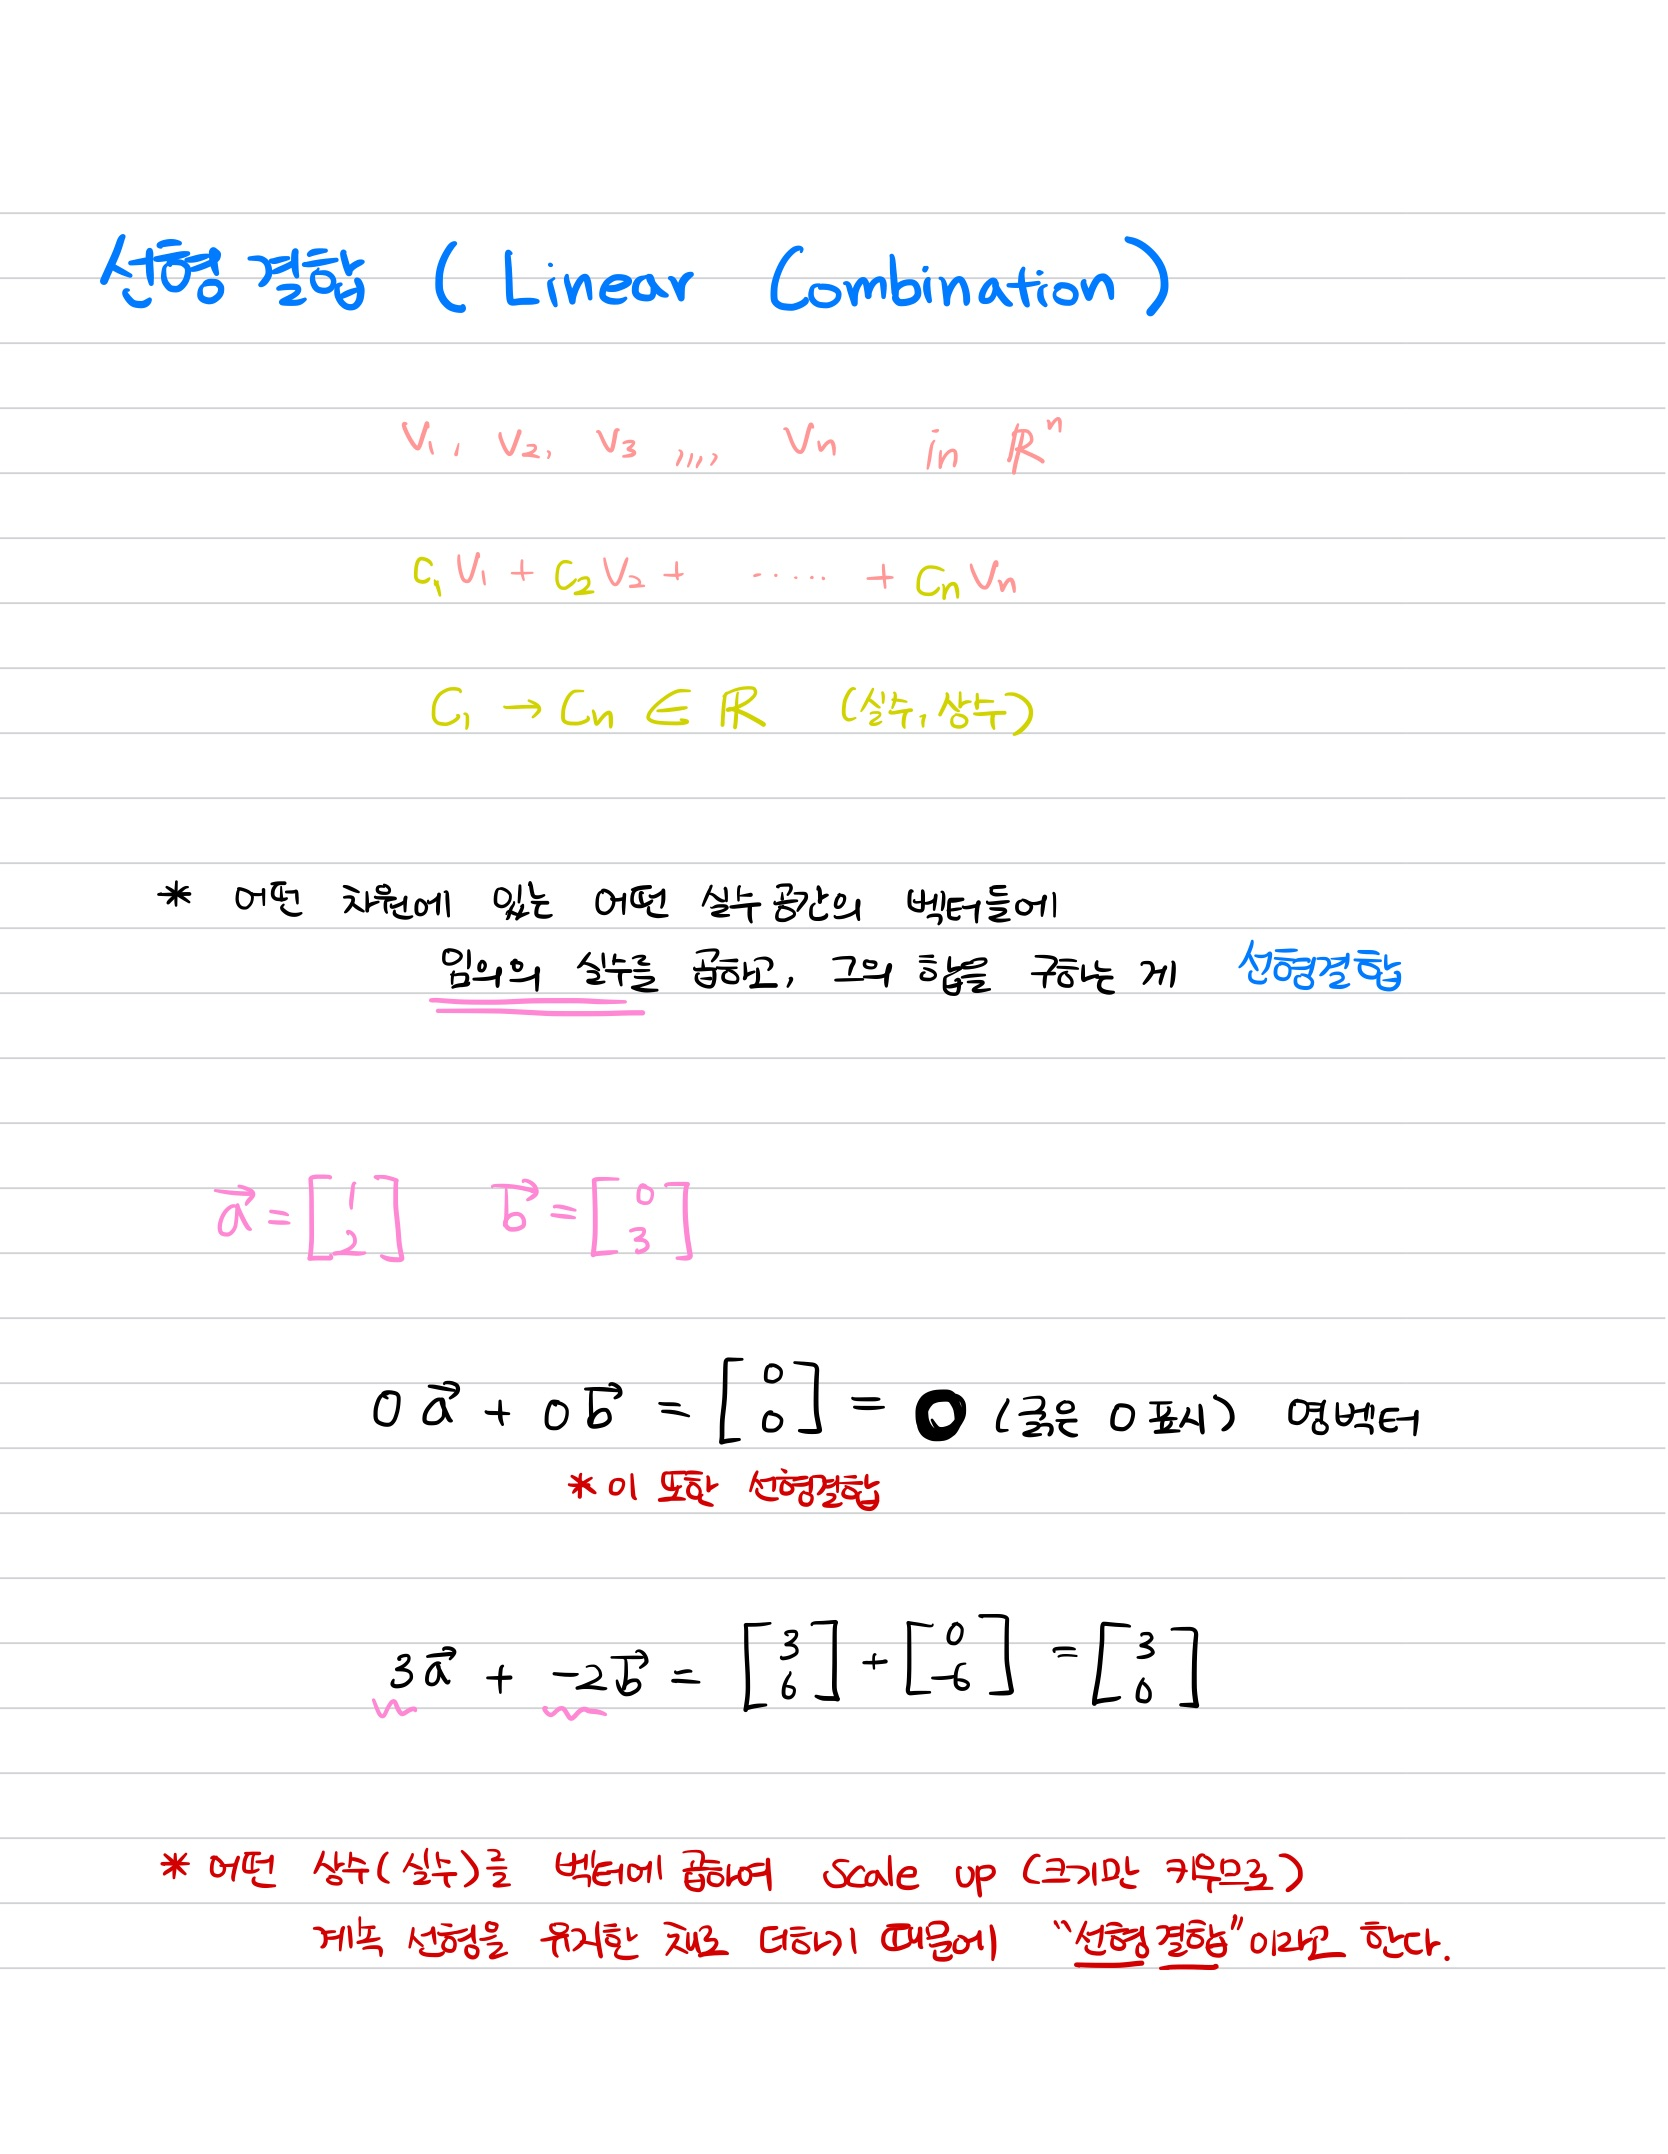 선형 결합 ( Linear Combination )
v₁, v₂, v₃ ,,,,, vₙ in ℝⁿ
c₁v₁ + c₂v₂ + ······ + cₙvₙ
C₁ → Cₙ ∈ ℝ (실수, 상수)
* 어떤 차원에 있는 어떤 실수 공간의 벡터들에
임의의 실수를 곱하고, 그의 합을 구하는 게 선형결합
a⃗ = [1 2] b⃗ = [0 3]
0a⃗ + 0b⃗ = [0 0] = 0 (굵은 0 표시) 영벡터
* 이 또한 선형결합
3a⃗ + -2b⃗ = [3 6] + [0 -6] = [3 0]
* 어떤 상수(실수)를 벡터에 곱하여 Scale up (크기만 키우므로)
계속 선형을 유지한 채로 더하기 때문에 "선형 결합"이라고 한다.